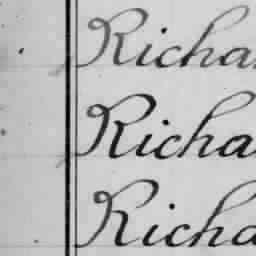 Richa
Richa
Richa